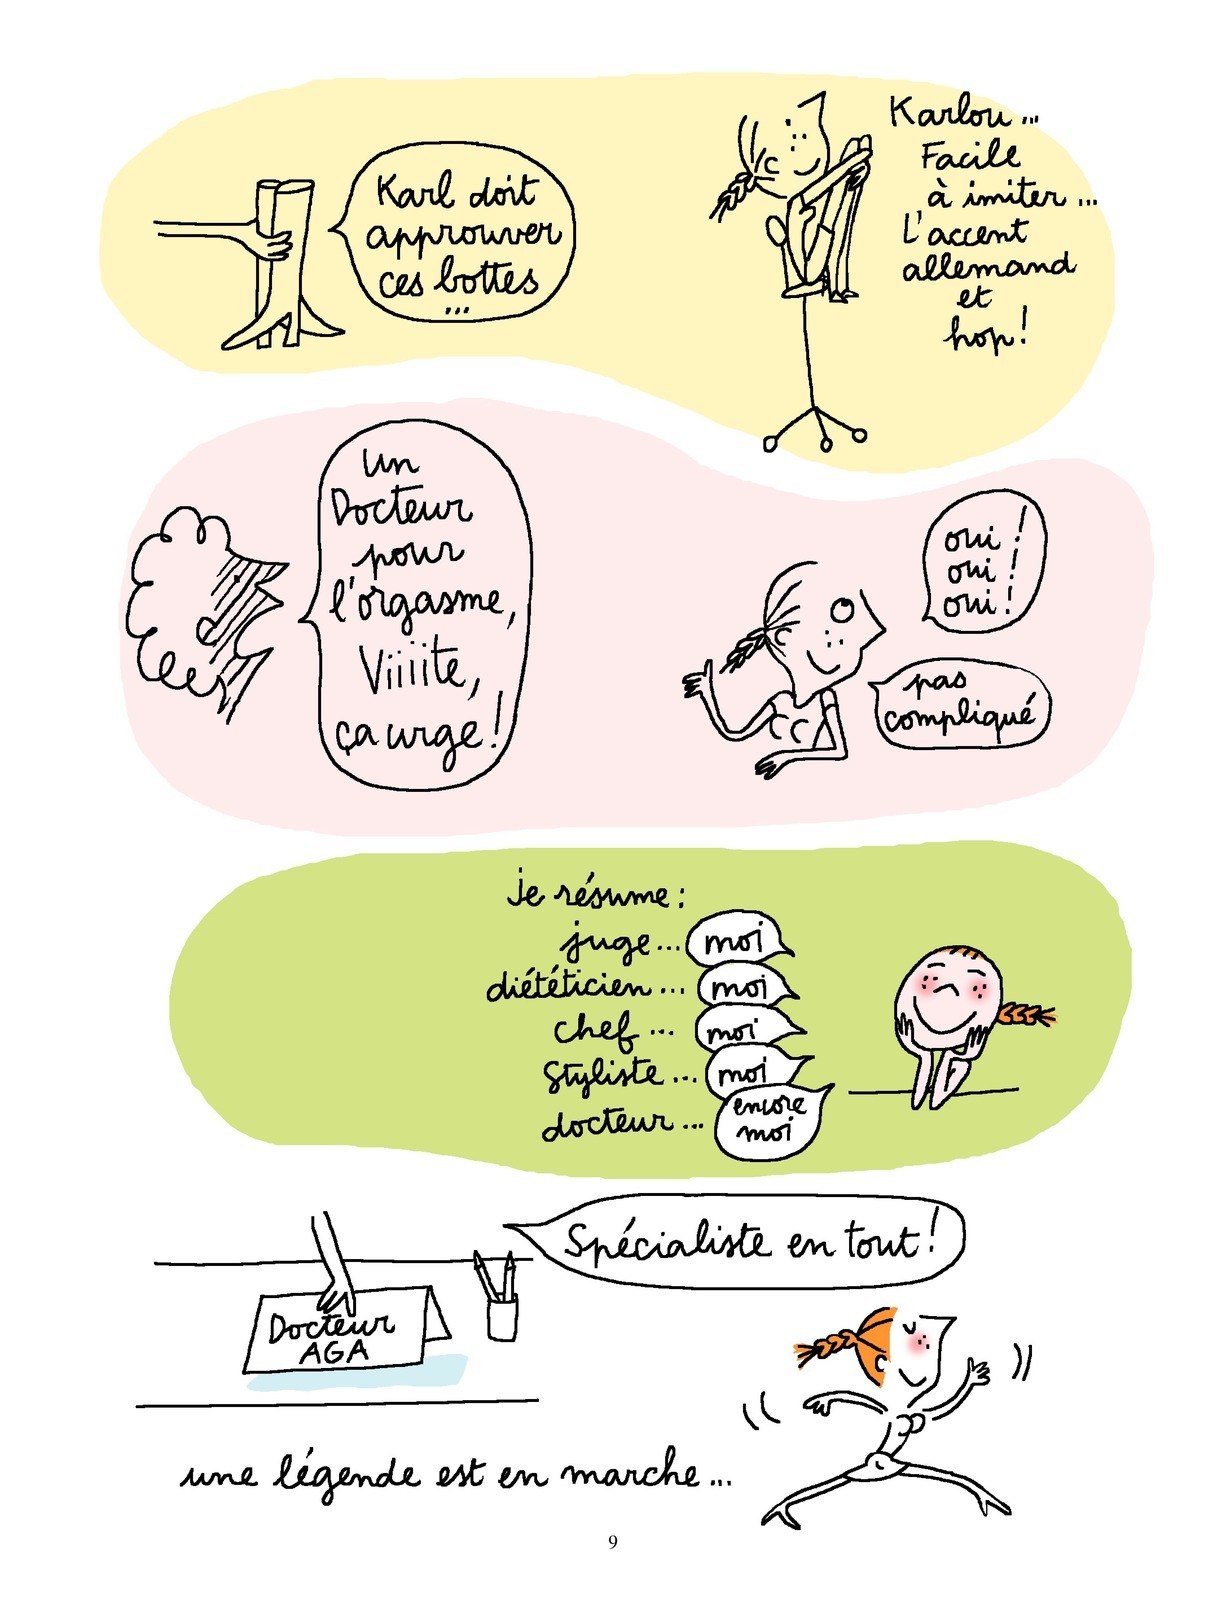 Karl doit
approuver
ces bottes
...
Karlou...
Facile
à imiter...
L'accent
allemand
et
hop!
un
Docteur
pour
l'orgasme,
Viiiite,
ça urge!
oui!
oui!
oui!
pas
compliqué
je résume:
juge... moi
diététicien... moi
chef... moi
Styliste... moi
docteur... encore
moi
Spécialiste en tout!
Docteur
AGA
une légende est en marche...
9